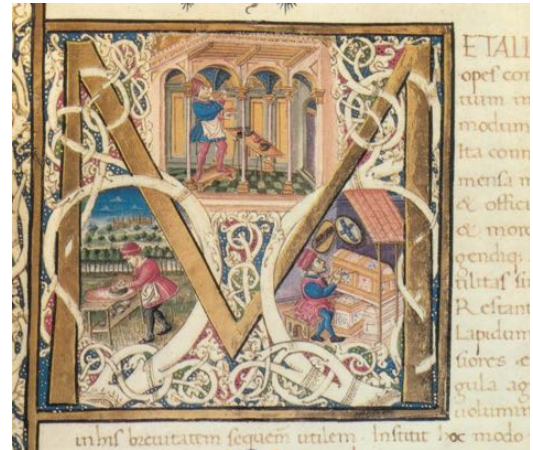 METALL
opes con
modum
Ita conn
mensa m
& offici
& more
gendiq
Restant
Lapidum
gula ag
uolumin
in his breuitatem sequem utilem. Instituit hoc modo